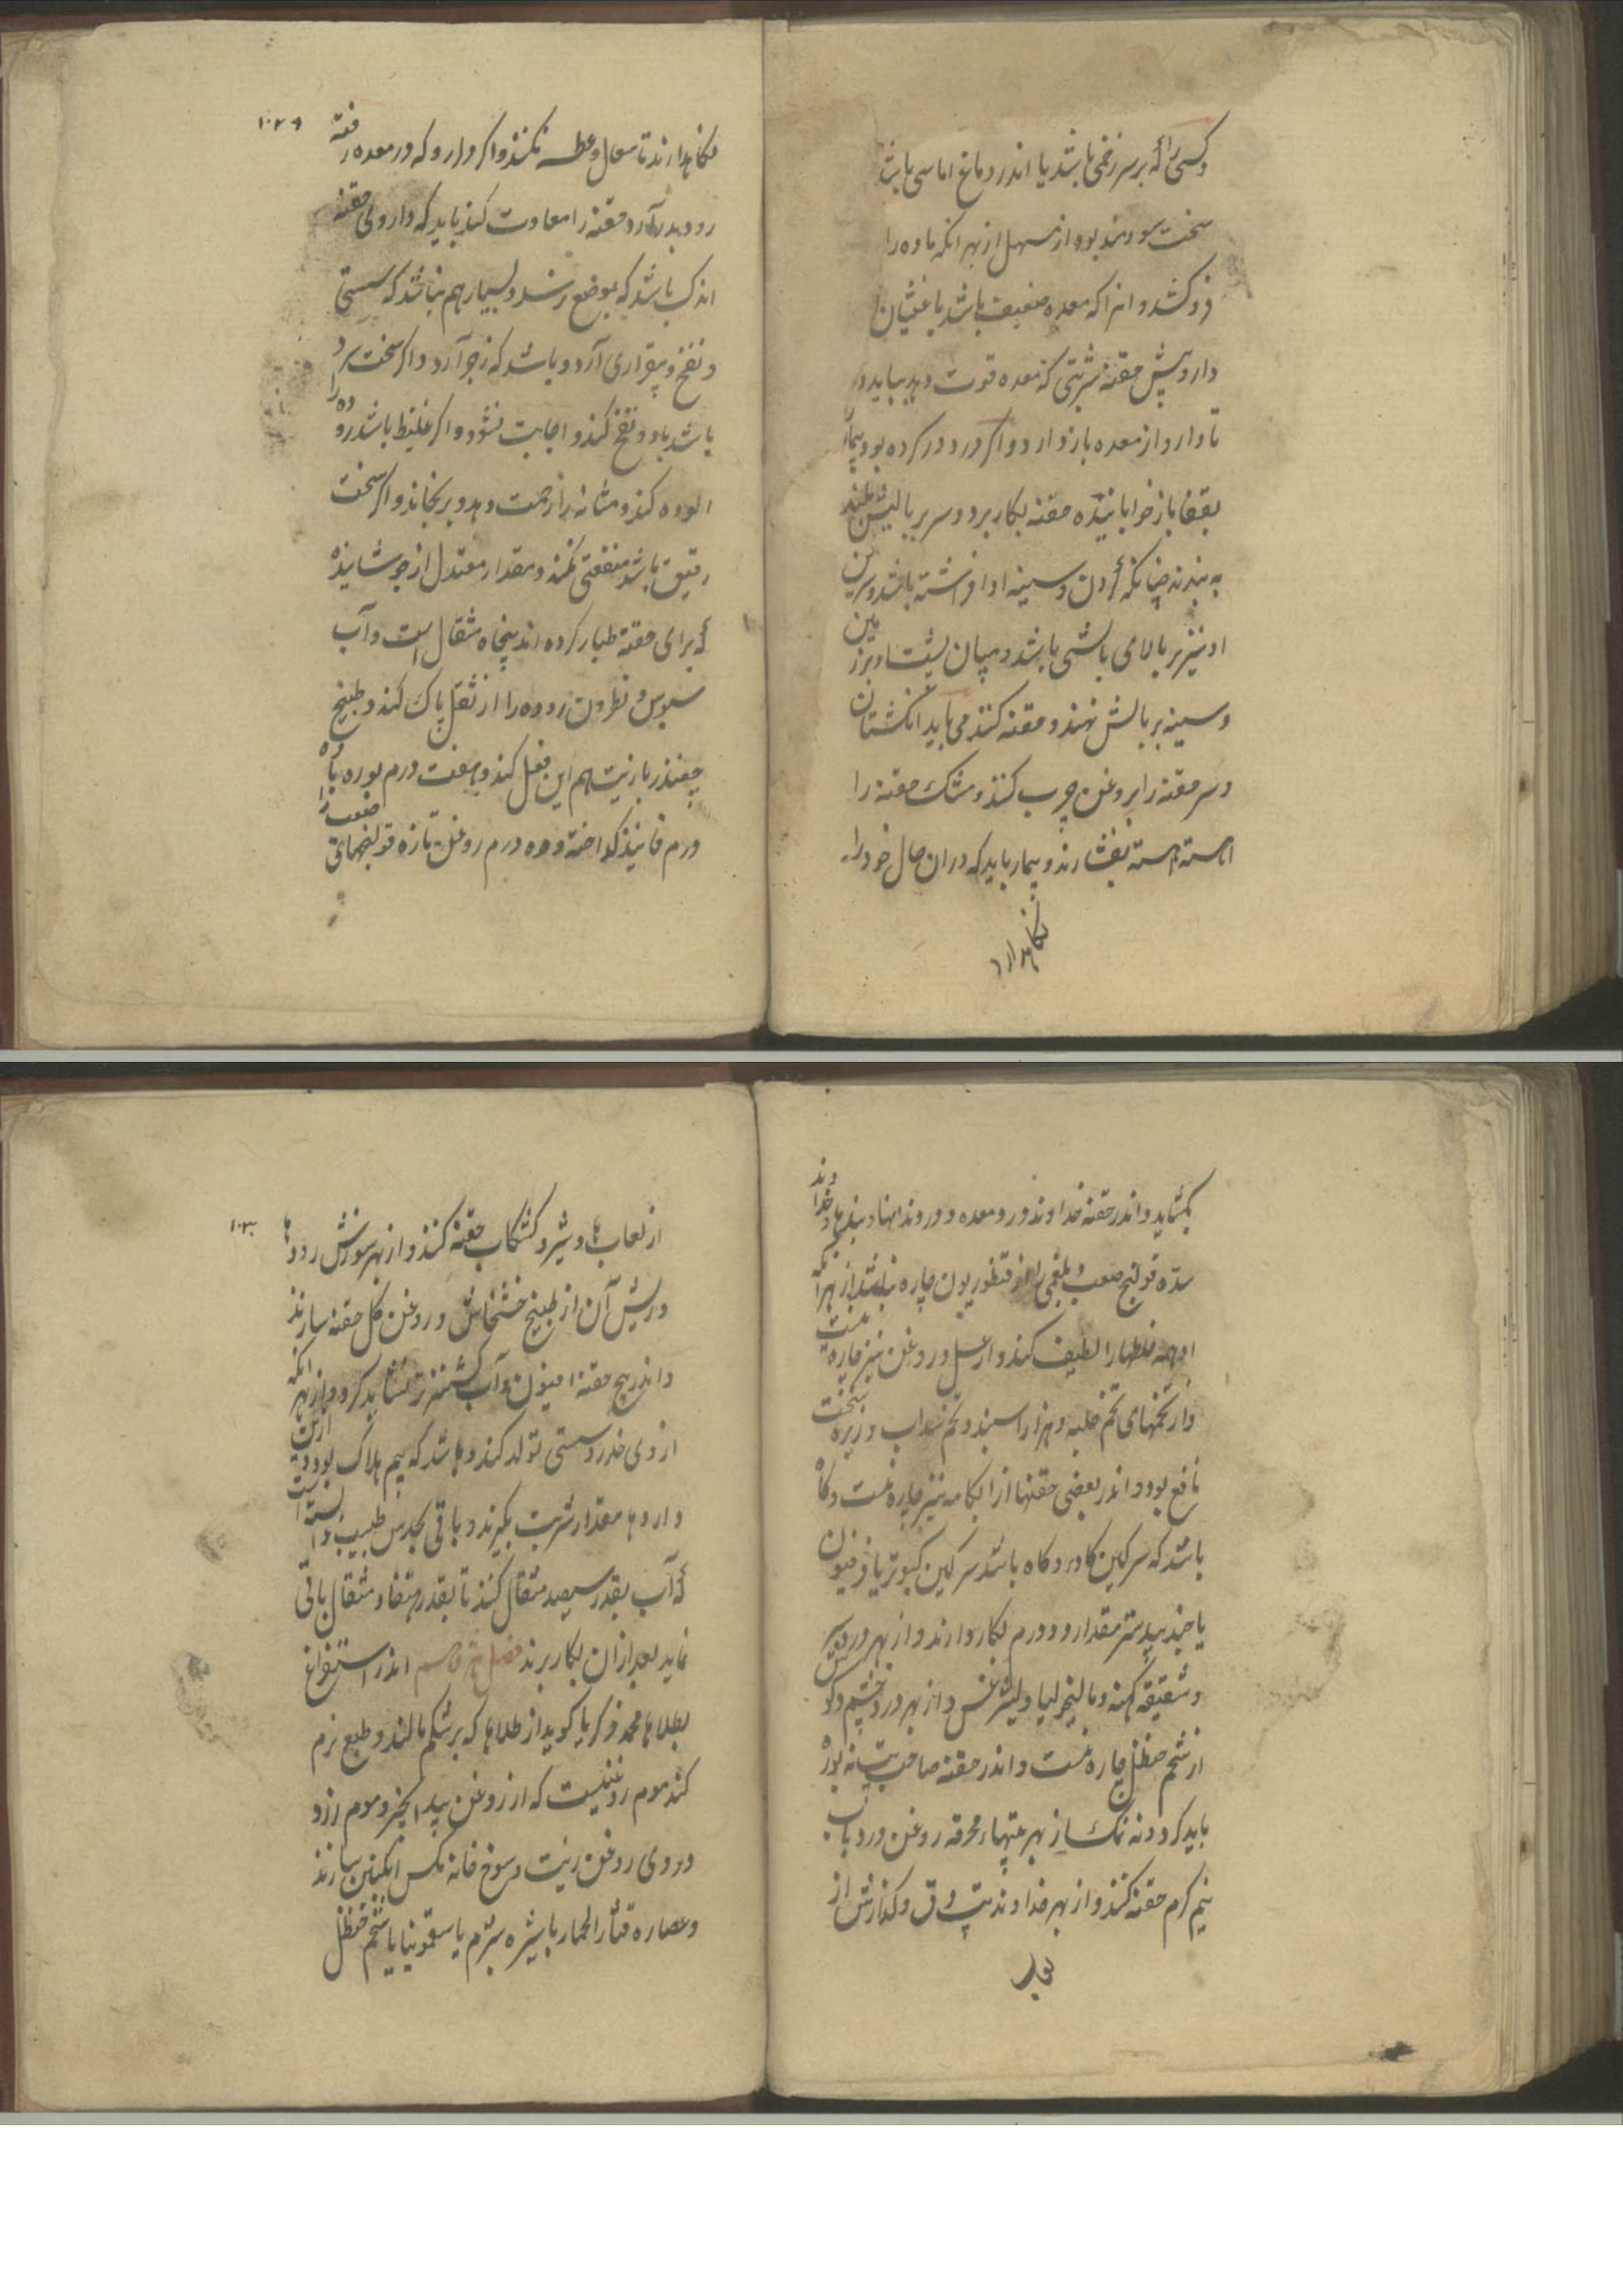 وکسی را که بر سر زخمی باشد یا اندر دماغ اماسی باشد
سخت سودمند بود از مسهل از بهر انکه ماده را
فروکشد و انرا که معده ضعیف باشد یا غثیان
دارد پیش حقنه شربتی که معده قوت دهد بباید داد
تا دارو از معده باز دارد و اکر درد در کرده بود بیمار
بقفا باز خوابانیده حقنه بکار برد و سر بر بالیش بلند
به بندند چنانکه کردن و سینه او افراشته باشد و سرین
او نیز بر بالای بالشی باشد و میان پشت او بر زمین
و سینه بر بالش نهند و حقنه کنند می باید انکشتان
و سر حقنه را بروغن چرب کنند و مشک حقنه را
اهسته اهسته بفشارند و بیمار باید که دران حال خود را
نکاهدارد
۱۰۲۹
نکاهدارند تا سعال و عطسه نکنند و اکر دارو که در معده رفته
زود بدر آرد حقنه را معاودت کنند باید که داروی حقنه
اندک باشد که بموضع رسد و بسیار هم نباشد که سستی
و نفخ و بیقراری آرد و باشد که زحیر آرد و اکر سخت سرد
باشد باد و نفخ کند و اجابت نشود و اکر غلیظ باشد روده را
الوده کند و مثانه را زحمت دهد و برنجاند و اکر سخت
رقیق باشد منفعتی نکند و مقدار معتدل از جوشانیده
که برای حقنه طیار کرده اند پنجاه مثقال است و آب
سبوس و نطرون روده را از ثفل پاک کند و طبیخ
چغندر با زیت هم این فعل کند و هفت درم بوره با ده
درم فانیذ کداخته و ده درم روغن تازه قولنجهای صعب را
بکشاید و اندر حقنه خداوند درد معده و درد نهاد بندها و خداوند
سده قولنج صعب و بلغمی را از قنطوریون چاره نباشد از بهر آنکه
او همه خلطها را لطیف کند و از عسل و روغن نیز چاره نیست
و از تخمهای تخم حلبه و هزار اسبند و تخم سداب و زیره سخت
نافع بود و اندر بعضی حقنها از ابکامه نیز چاره نیست و کاه
باشد که سرکین کاو و کاه باشد سرکین کبوتر یا فرفیون
یا جندبیدستر مقدار دو درم بکار دارند و از بهر درد سر
و شقیقه کهنه و مالیخولیا و لیثرغس و از بهر درد چشم و کوش
از شحم حنظل چاره نیست و اندر حقنه صاحب تب نه بوره
باید کرد و نه نمک از بهر تبهاء محرقه روغن ورد با آب
نیم کرم حقنه کنند و از بهر خداوند تب دق و کدازش از
لعاب
۱۰۳۰
از لعاب ها و شیر و کشکاب حقنه کنند و از بهر سوزش رودها
و ریش آن از طبیخ خشخاش و روغن کل حقنه سازند
و اندر هیچ حقنه افیون و آب کشنیز تر نشاید کرد و از بهر انکه
از وی خدر و سستی تولد کند و باشد که بیم هلاک بود و ازین
داروها مقدار شربت بکیرند و باقی بحدس طبیب وابسته است
که آب بقدر سیصد مثقال کنند تا بقدر هفتاد مثقال باقی
نماید بعد ازان بکار برند فصل هژدهم اندر استفراغ
بطلاها محمد زکریا کوید از طلاها که بر شکم مالند و طبع نرم
کند موم روغنیست که از روغن بید انجیر و موم زرد
و دردی روغن زیت و سوخ خانه مکس انکبین سازند
و عصاره قثاء الحمار یا شیره شبرم یا سقمونیا یا شحم حنظل